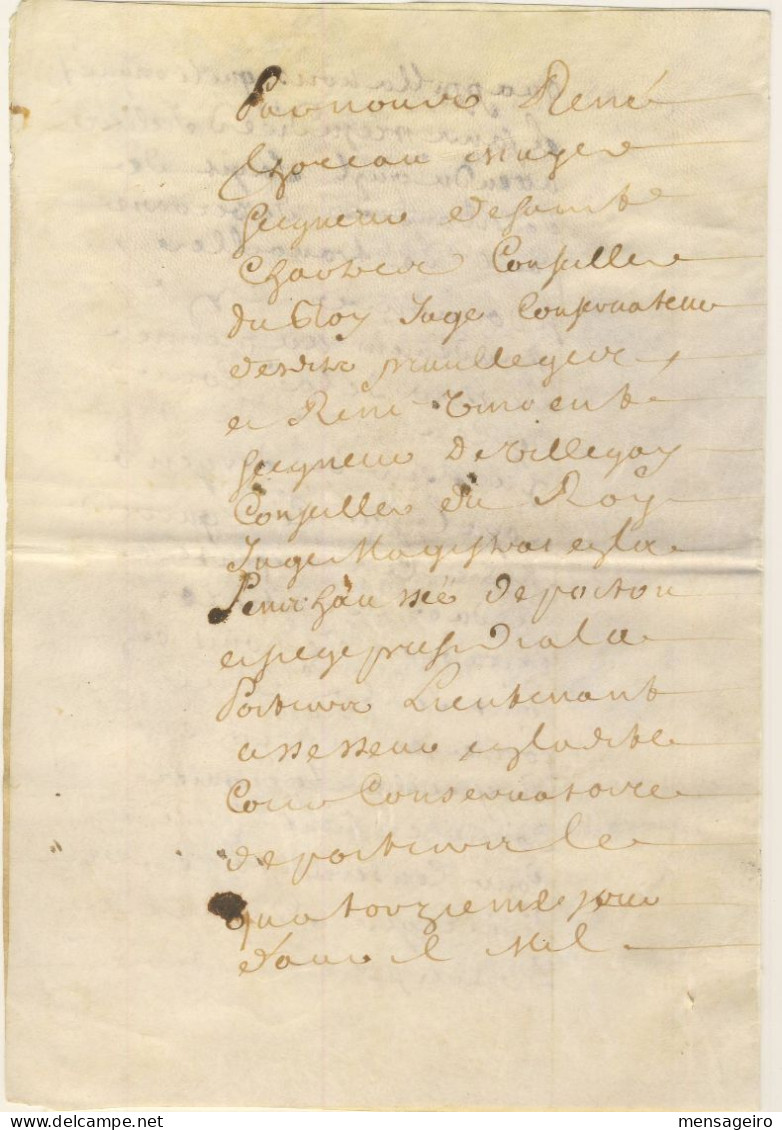 Par nous René
Thoreau escuyer
Seigneur de
Conseiller
du Roy Juge Conservateur
desdits privilleges
et René
Seigneur de Villegay
Conseiller du Roy
Juge Magistrat en la
Senechaussée de poitou
et siege presidial a
Poitiers Lieutenant
assesseur en ladite
Cour Conservatoire
de poitiers le
quatorzieme jour
d'auril Mil
mensageiro